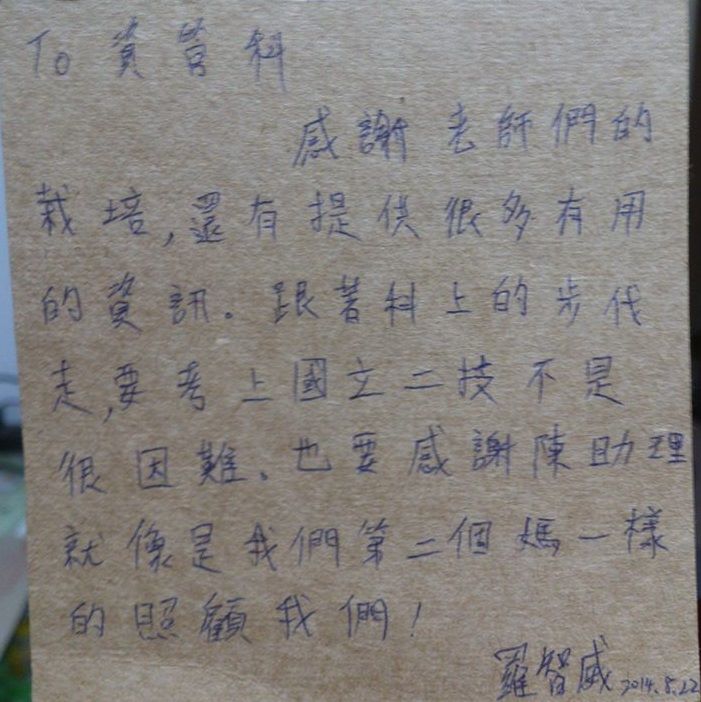 To 資管科
感謝老師們的
栽培,還有提供很多有用
的資訊。跟著科上的步代
走,要考上國立二技不是
很因難。也要感謝陳助理
就像是我們第二個媽一樣
的照顧我們!
羅智威 2014.5.22